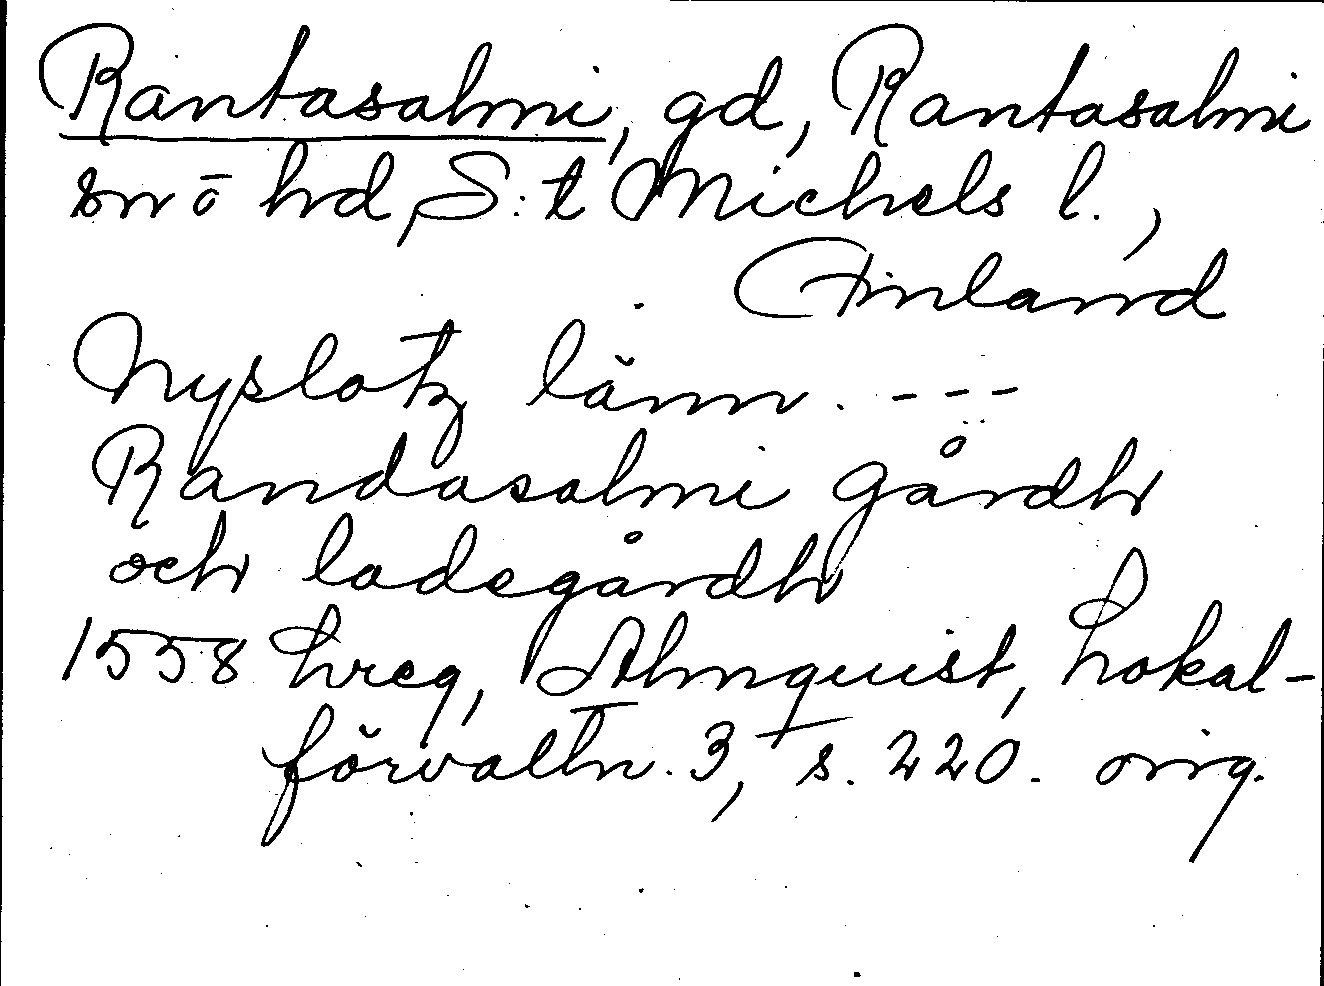 Rantasalmi, gd, Rantasalmi
sn o hd, S:t Michels l.,
Finland
Nyslotz länn. ---
Randasalmi gårdh
och ladegårdh
1558 hreg, Almquist, Lokal-
förvaltn. 3, s. 220. orig.